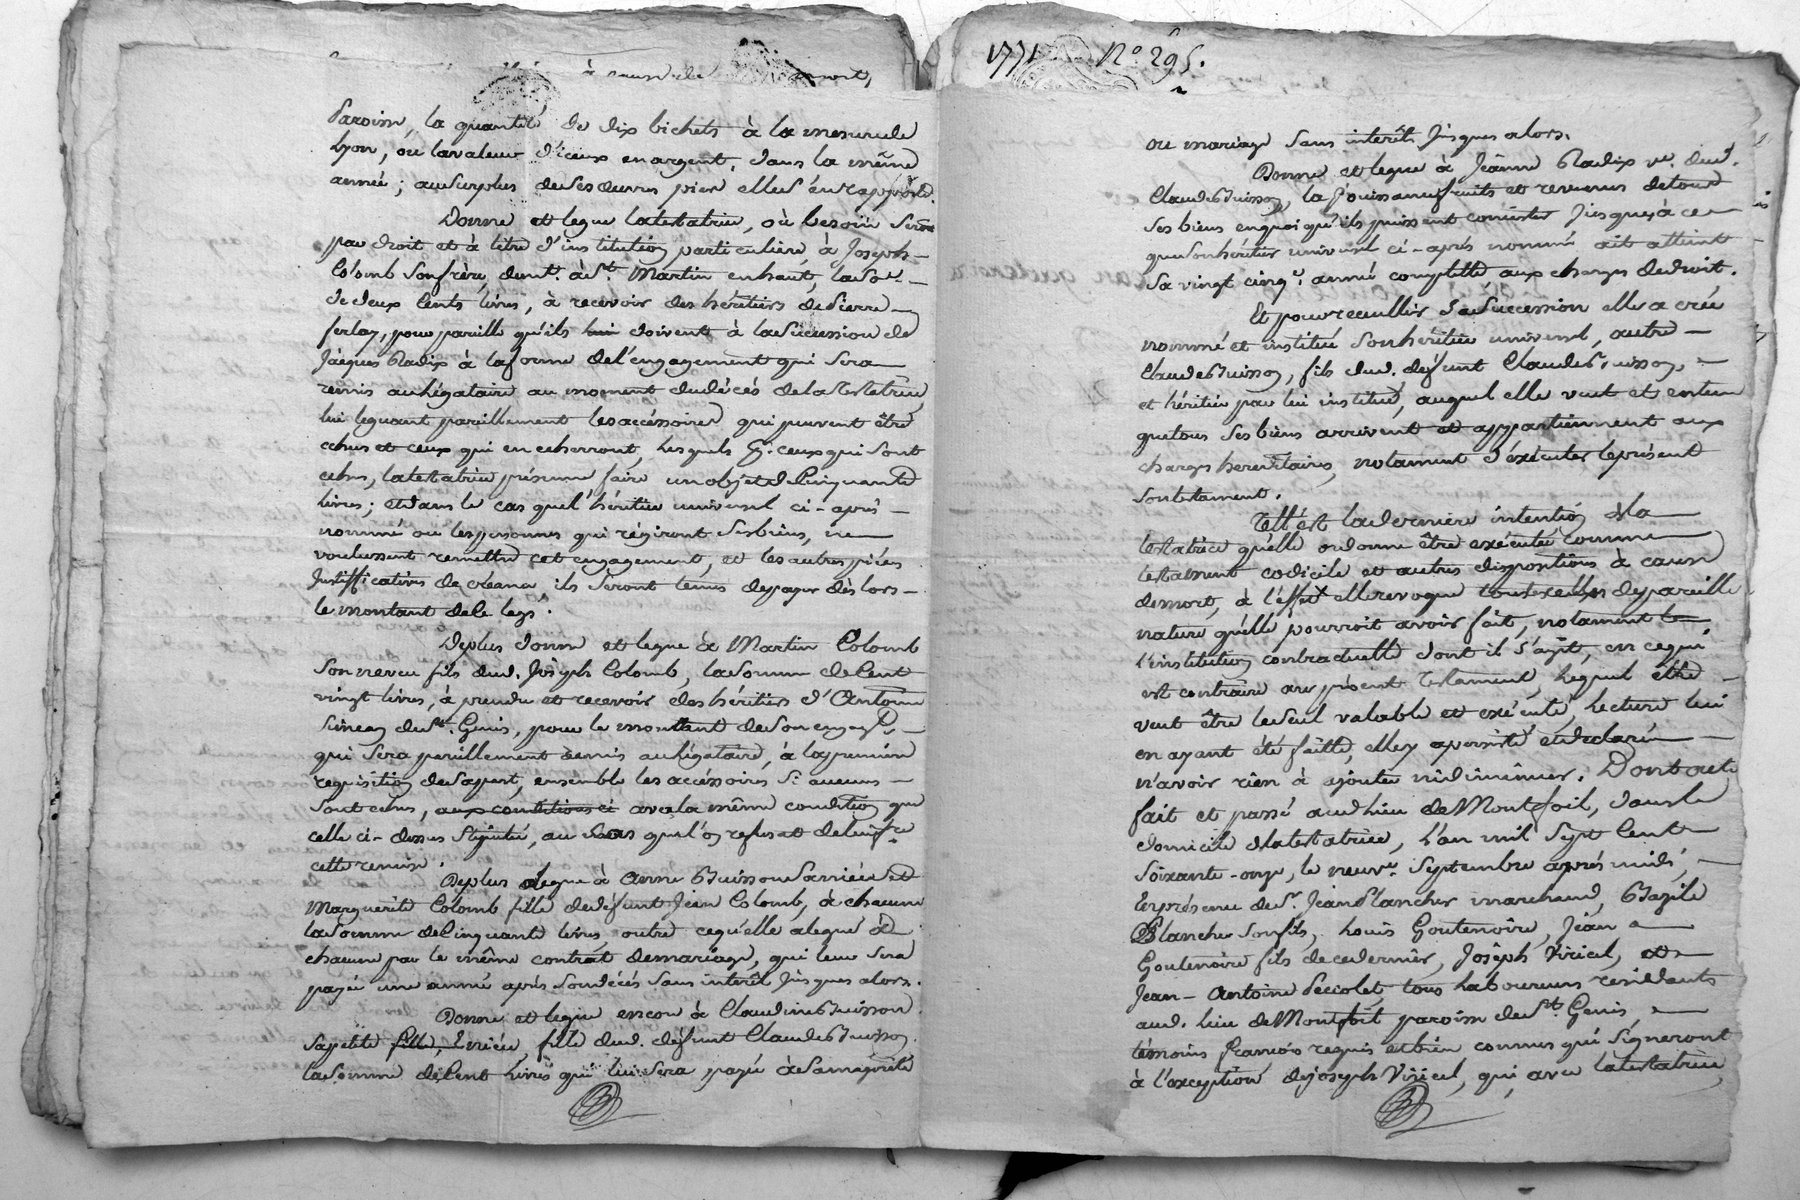 à cause de mort,
Paroisse, la quantité de dix bichets à la mesure de
Lyon, ou la valeur d'iceux en argent, dans la même
année; au surplus de ses œuvres pies elle s'en rapporte.
Donne et legue la testatrice, où besoin seroit
par droit et à titre d'institution particuliere, à Joseph
Colomb son frère, demt. à St. Martin en haut, la so.e
de deux Cents livres, à recevoir des héritiers de Pierre
ferlay, pour pareille qu'ils lui doivent à la succession de
Jacques Radix à la forme de l'engagement qui sera
remis au légataire au moment du décés de la testatrice,
lui leguant pareillement les accéssoires qui peuvent être
echus et ceux qui en echerront, lesquels ceux qui sont
echus, la testatrice présume faire un objet de Cinquante
livres; et dans le cas que l'héritier universel ci-après
nommé ou les personnes qui régiront ses biens, ne
voulussent remettre cet engagement, et les autres piéces
Justifficatives de créance, ils seront tenus de payer dès lors
le montant de ce legs.
De plus donne et legue à Martin Colomb
son neveu fils dud. Joseph Colomb, la somme de Cent
vingt livres, à prendre et recevoir des héritiers d'Antoine
de St. Genis, pour le montant de son engagt.
qui sera pareillement remis au légataire, à la première
requisition de sa part, ensemble les accéssoires si aucuns
sont echus, aux conditions ci avec la même condition que
celle ci-dessus stipulée, au cas que l'on refusat de lui fre.
cette remise.
De plus legue à Anne Buisson sa niéce et
Marguerite Colomb fille de défunt Jean Colomb, à chacune
la somme de Cinquante livres, outre ce qu'elle a legué à
chacune par le même contrat de mariage, qui leur sera
payée une année après son décés sans intérêt jusques alors.
Donne et legue encore à Claudine Buisson
sa petite fille, niéce, fille dud. défunt Claude Buisson
la somme de Cent Livres qui lui sera payée à sa majorité
1771 No. 295.
ou mariage sans interêt jusques alors.
Donne et legue à Jeanne Radix ve. dud.
Claude Buisson, la Jouissance fruits et revenus de tous
ses biens en quoi qu'ils puissent consister jusques à ce
que son héritier universel ci-après nommé ait atteint
sa vingt cinq.e année complette aux charges de droit.
Et pour recueillir sa succession elle a créé
nommé et institué son héritier universel, autre
Claude Buisson, fils dud. défunt Claude Buisson,
et héritier par lui institué, auquel elle veut et entend
que tous ses biens arrivent et appartiennent aux
charges hereditaires, notament d'éxécuter le présent
son testament.
Tell'est la derniere intention de la
testatrice qu'elle ordonne être exécutée comme
testament codicile et autres dispositions à cause
de mort, à l'effet elle revoque toutes celles de pareille
nature qu'elle pourroit avoir fait, notament
l'institution contractuelle dont il s'agit, en ce qui
est contraire au présent testament, lequel elle
veut être le seul valable et exécuté, Lecture lui
en ayant été faitte, elle y a persisté et declaré
n'avoir rien à ajouter ni diminuer. Dont acte
fait et passé aud. lieu de Montfoil, dans le
domicile de la testatrice, L'an mil sept Cent
soixante-onze, le neuv.e Septembre après midi,
En présence de Sr. Jean Blancher marchand, Bazile
Blancher son fils, Louis Goutenoire, Jean
Goutenoire fils de ce dernier, Joseph Viricel, et
Jean-Antoine Peciolet, tous Laboureurs residents
aud. lieu de Montfoit paroisse de St. Genis,
témoins françois requis et bien connus qui signeront
à l'exception de joseph Viricel, qui, avec la testatrice,